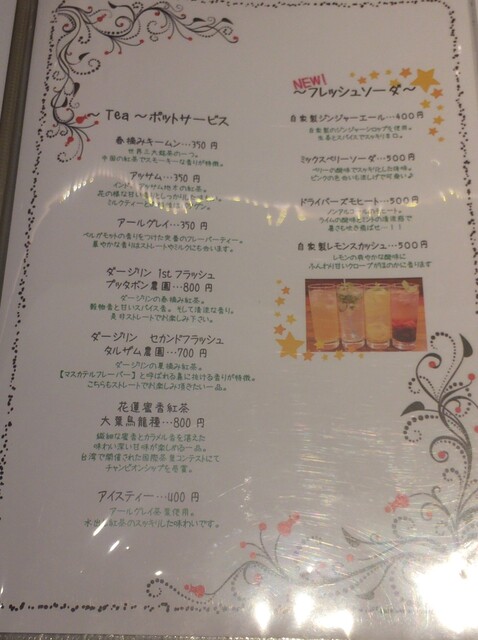 ～ Tea ～ポットサービス
春摘みキームン…350 円
世界三大銘茶の一つ。
中国の紅茶でスモーキーな香りが特徴。
アッサム…350 円
インド、アッサム地方の紅茶。
ミルクティー
アールグレイ…350 円
ベルガモットの香りをつけた定番のフレーバーティー。
華やかな香りはストレートやミルクにも合います。
ダージリン 1st フラッシュ
プッタボン農園…800 円
ダージリンの春摘み紅茶。
穀物香と甘いスパイス香。そして清涼な香り。
是非ストレートでお楽しみ下さい。
ダージリン セカンドフラッシュ
タルザム農園…700 円
ダージリンの夏摘み紅茶。
【マスカテルフレーバー】と呼ばれる鼻に抜ける香りが特徴。
こちらもストレートでお楽しみ頂きたい一品。
花蓮蜜香紅茶
大葉烏龍種…800 円
繊細な蜜香とカラメル香を湛えた
味わい深い甘味が楽しめる一品。
台湾で開催された国際茶葉コンテストにて
チャンピオンシップを受賞。
アイスティー…400 円
アールグレイ茶葉使用。
水出し紅茶のスッキリした味わいです。
NEW!
～フレッシュソーダ～
自家製ジンジャーエール…400円
自家製のジンジャーシロップを使用。
生姜とスパイスでスッキリ辛口。
ミックスベリーソーダ…500円
ベリーの酸味でスッキリした後味。
ピンクの色合いも涼しげで可愛い♪
ドライバーズモヒート…500円
ノンアルコールモヒート。
ライムの酸味とミントの清涼感で
暑さも吹き飛ばせ—！！
自家製レモンスカッシュ…500円
レモンの爽やかな酸味に
ふんわり甘いクローブがほのかに香ります